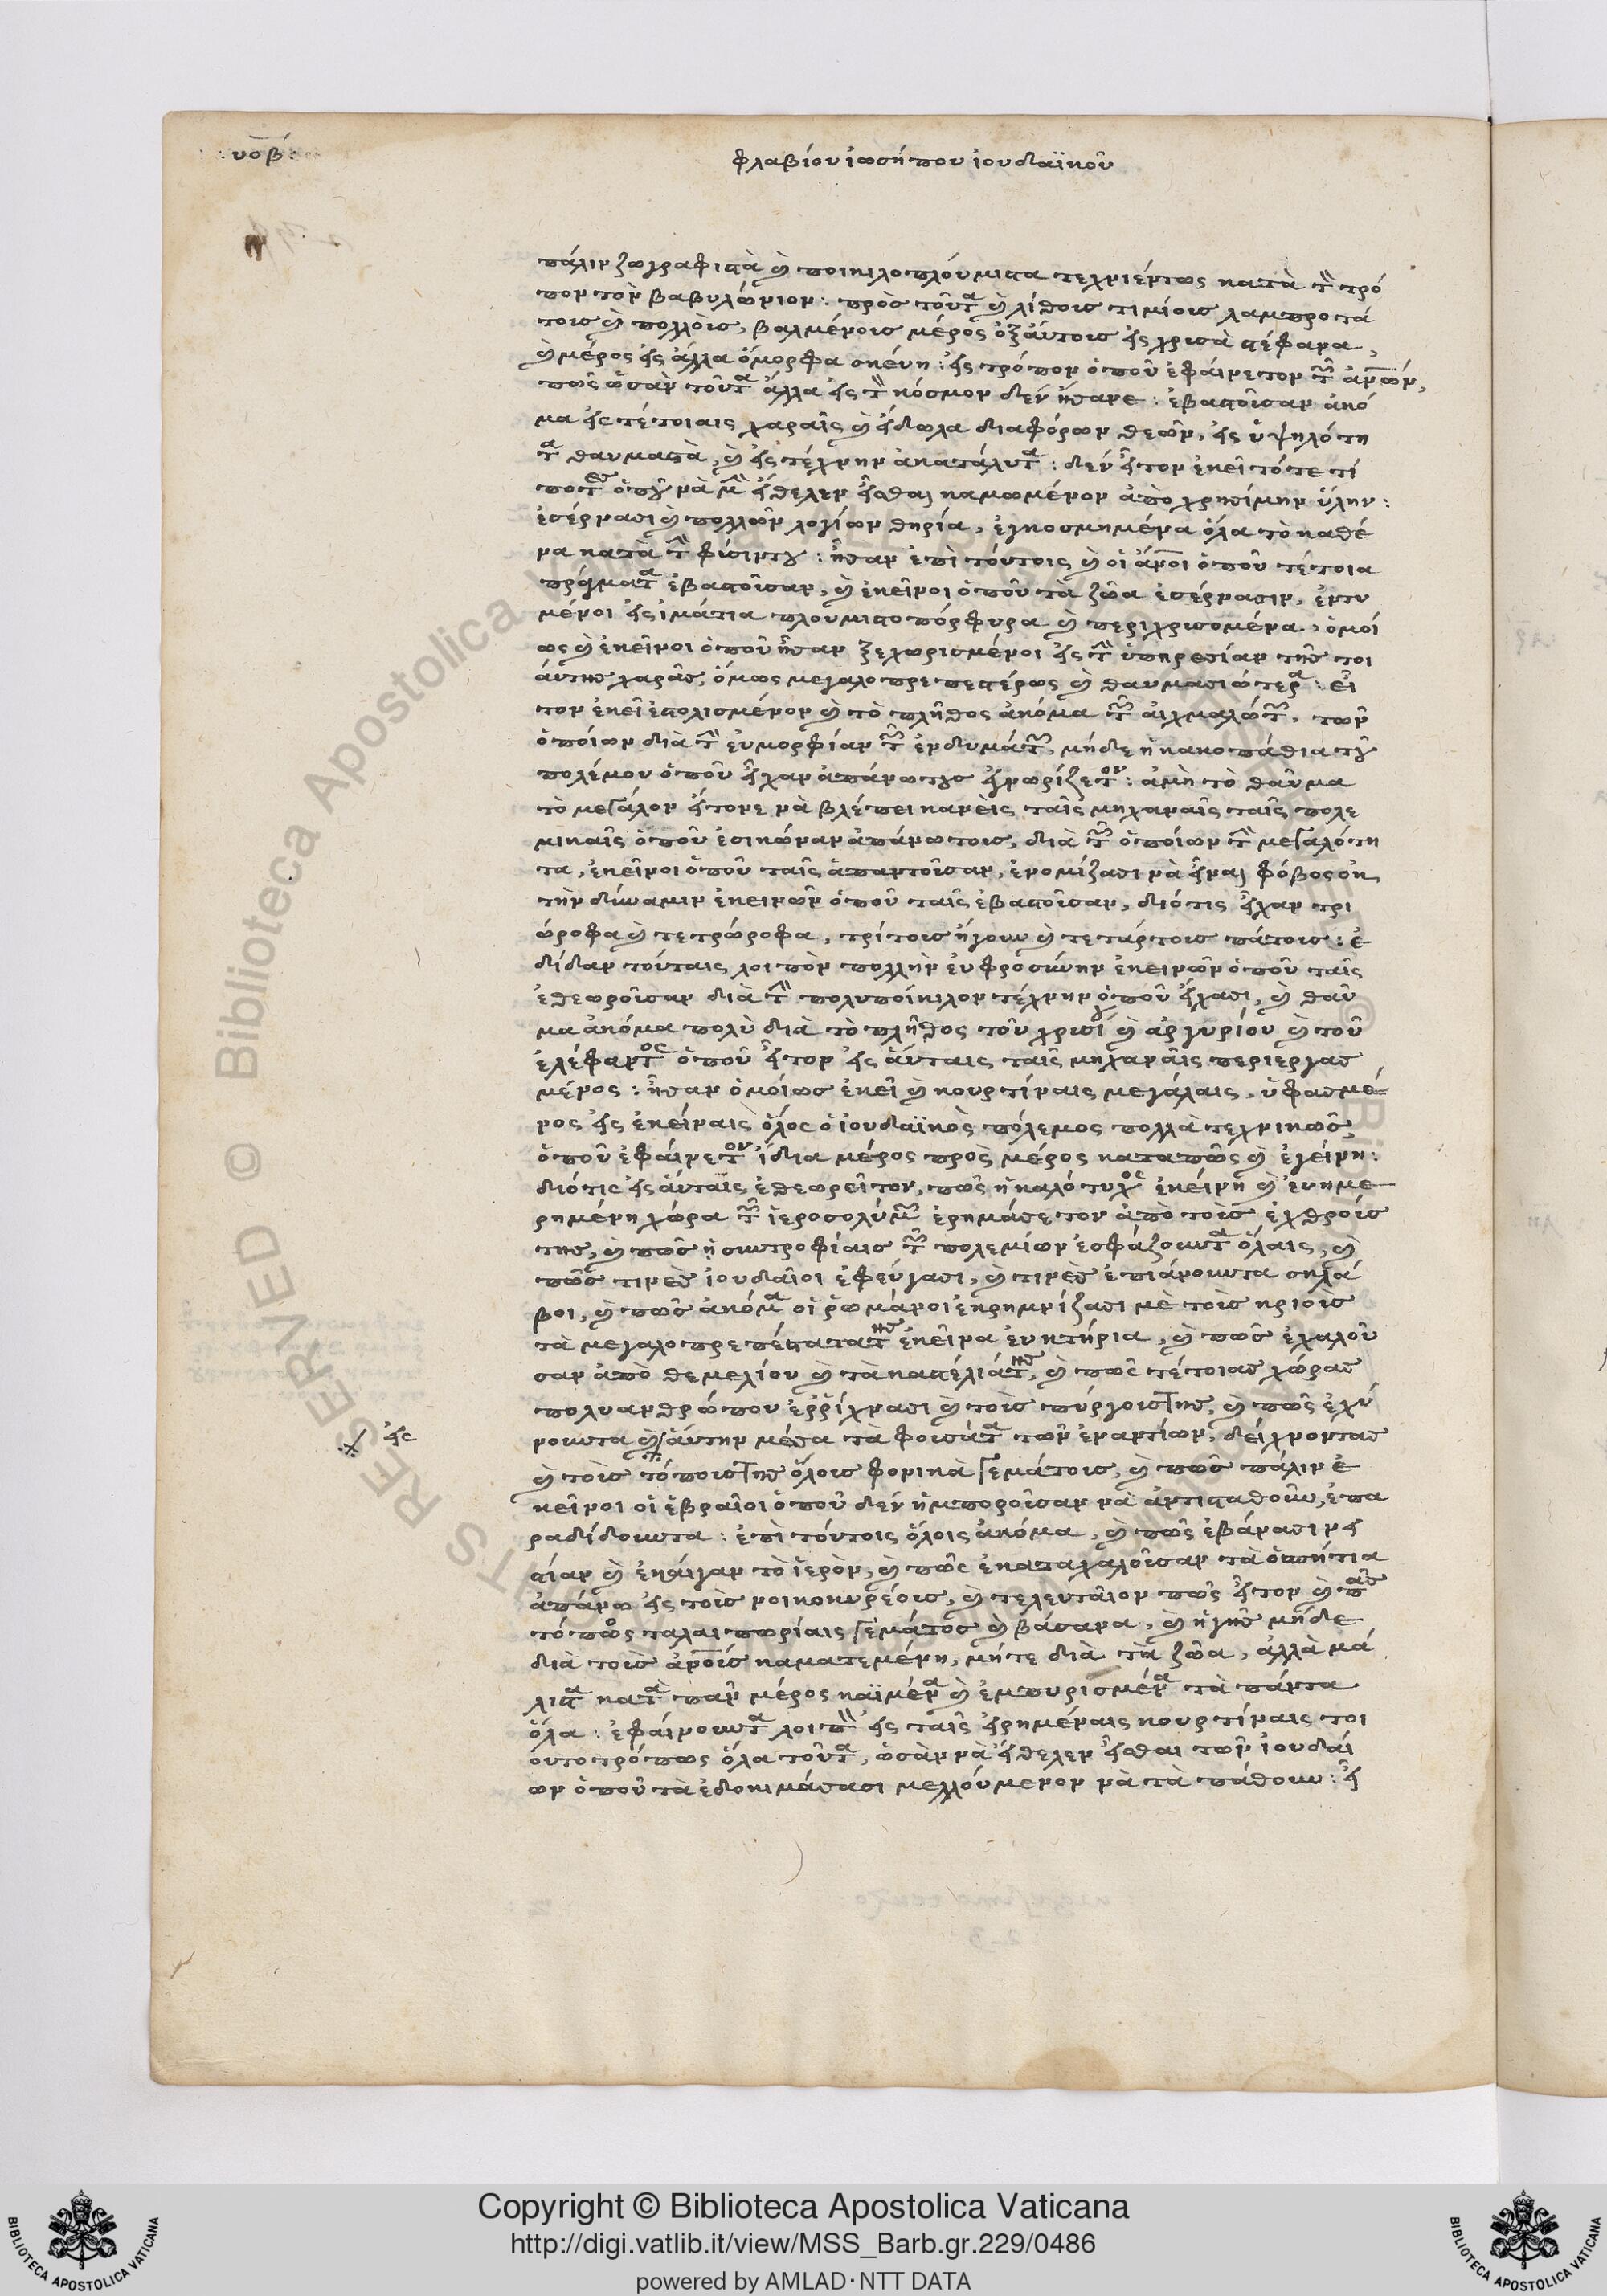 :υοβ:
φλαβίου ἰωσήπου ἰουδαϊκοῦ
πάλιν ζωγραφιστὰ καὶ ποικιλοπλούμιστα τεχνιέντως κατὰ τὸν τρό
πον τὸν βαβυλώνιον: πρὸς τοῦτα καὶ λίθοις τιμίοις λαμπροτά
τοις καὶ πολλοῖς, βαλμένοις μέρος ὀξαύτοις εἰς χρισὰ στέφανα,
καὶ μέρος εἰς ἄλλα ὄμορφα σκένη: εἰς τρόπον ὁποῦ ἐφαίνετον τῶν ἀνων,
πῶς ὡσὰν τοῦτα ἄλλα εἰς τὸν κόσμον δὲν ἤσανε: ἐβαστοῦσαν ἀκό
μα εἰς τέτοιαις χαραῖς καὶ εἴδωλα διαφόρων θεῶν, εἰς ὑψηλότη
τα θαυμαστὰ, καὶ εἰς τέχνην ἀκατάλυτα: δὲν εἶτον ἐκεῖ τότε τί
ποτες ὁποῦ νὰ μὴν εἴθελεν εἶσθαι καμωμένον ἀπὸ χρησίμην ὕλην:
ἐσέρνασι καὶ πολλῶν λογίων θηρία, ἐγκοσμημένα ὅλα τὸ καθέ
να κατὰ τὴν φύσιντου: ἦσαν ἐπὶ τούτοις καὶ οἱ ἄνοι ὁποῦ τέτοια
πράγματα ἐβαστοῦσαν, καὶ ἐκεῖνοι ὁποῦ τὰ ζῶα ἐσέρνασιν, ἐντυ
μένοι εἰς ἱμάτια πλουμιστοπόρφυρα καὶ περιχρισομένα, ὁμοί
ως καὶ ἐκεῖνοι ὁποῦ ἦσαν ξεχωρισμένοι εἰς τὴν ὑπηρεσίαν τῆς τοι
άυτης χαρᾶς, ὅμως μεγαλοπρεπεστέρως καὶ θαυμασιώτερα: εἶ
τον ἐκεῖ ἐστολισμένον καὶ τὸ πλῆθος ἀκόμα τῶν αἰχμαλώτων, τῶν
ὁποίων διὰ τὴν ἐυμορφίαν τῶν ἐνδυμάτων, μήδε ἡ κακοπάθια τοῦ
πολέμου ὁποῦ εἶχαν ἀπάνωτους ἐγνωρίζετον: ἀμὴ τὸ θαῦμα
τὸ μεγάλον εἴτονε νὰ βλέπει κανεὶς ταῖς μηχαναῖς ταῖς πολε
μικαῖς ὁποῦ ἐσικώναν ἀπάνωτοις, διὰ τῶν ὁποίων τὴν μεγαλότη
τα, ἐκεῖνοι ὁποῦ ταῖς ἀπαντοῦσαν, ἐνομίζασι νὰ εἶναι φόβος ἐις
τὴν δύναμιν ἐκεινῶν ὁποῦ ταῖς ἐβαστοῦσαν, διότις εἶχαν τρι
ώροφα καὶ τετρώροφα, τρίτοις ἤγουν καὶ τετάρτοις πάτοις: ἐ
δίδαν τούταις λοιπὸν πολλὴν ἐυφροσύνην ἐκεινῶν ὁποῦ ταῖς
ἐθεωροῦσαν διὰ τὴν πολυποίκιλον τέχνην ὁποῦ εἴχασι, καὶ θαῦ
μα ἀκόμα πολὺ διὰ τὸ πλῆθος τοῦ χρισοῦ καὶ ἀργυρίου καὶ τοῦ
ἐλέφαντος ὁποῦ εἶτον εἰς ἄυταις ταῖς μηχαναῖς περιεργασ
μένος: ἦσαν ὁμοίως ἐκεῖ καὶ κουρτίναις μεγάλαις, ὑφασμέ
νος εἰς ἐκείναις ὅλος ὁ ἰουδαϊκὸς πόλεμος πολλὰ τεχνικῶς,
ὁποῦ ἐφαίνετον ἴδια μέρος πρὸς μέρος καταπῶς καὶ ἐγείνη:
διότις εἰς ἀυταῖς ἐθεωρεῖτον, πῶς ἡ καλότυχος ἐκείνη καὶ ἐυημε
ρημένη χώρα τῶν ἱεροσολύμων ἐρημάσετον ἀπὸ τοὶς ἐχθροὶς
της, καὶ πῶς ἡ συντροφίαις τῶν πολεμίων ἐσφάζουντα ὅλαις, καὶ
πῶς τινὲς ἰουδαῖοι ἐφεύγασι, καὶ τινὲς ἐπιάνουντα σκλά
βοι, καὶ πῶς ἀκόμα οἱ ῥωμάνοι ἐκρημνίζασι μὲ τοὶς κριοὶς
τὰ μεγαλοπρεπέστατατης ἐκεῖνα ἐυκτήρια, καὶ πῶς ἐχαλοῦ
σαν ἀπὸ θεμελίου καὶ τὰ καστέλιάτης, καὶ πῶς τέτοιας χώρας
πολυανθρώπου ἐῤῥίχνασι καὶ τοὶς πύργοιςτης, καὶ πῶς ἐχύ
νουντα καὶ ἄυτην μέσα τὰ φουσάτα τῶν ἐναντίων, δείχνοντας
εἰς
καὶ τοὶς τόποιςτης ὅλοις φονικὰ γεμάτοις, καὶ πῶς πάλιν ἐ
κεῖνοι οἱ ἑβραῖοι ὁποῦ δὲν ἠμποροῦσαν νὰ ἀντισταθοῦν, ἐπα
ραδίδουντα: ἐπὶ τούτοις ὅλοις ἀκόμα, καὶ πῶς ἐβάνασιν εἰ
στίαν καὶ ἐκαίγαν τὸ ἱερὸν, καὶ πῶς ἐκαταχαλοῦσαν τὰ ὁσπήτια
ἀπάνω εἰς τοὶς νοικοκυρέοις, καὶ τελευταῖον πῶς εἶτον καὶ πᾶς
τόπος ταλαιπωρίαις γεμάτος καὶ βάσανα, καὶ ἡ γῆς μήδε
διὰ τοὶς ἀνοὶς καματεμένη, μήτε διὰ τὰ ζῶα, ἀλλὰ μά
λιστα κατὰ πᾶν μέρος καϊμένα καὶ ἐμπυρισμένα τὰ πάντα
ὅλα: ἐφαίνουντα λοιπὸν εἰς ταῖς εἰρημέναις κουρτίναις τοι
ουτοτρόπως ὅλα τοῦτα, ὡσὰν νὰ εἴθελεν εἶσθαι τῶν ἰουδαί
ων ὁποῦ τὰ ἐδοκιμάσασι μελλούμενον νὰ τὰ πάθουν: εἰ
Copyright © Biblioteca Apostolica Vaticana
http://digi.vatlib.it/view/MSS_Barb.gr.229/0486
powered by AMLAD·NTT DATA